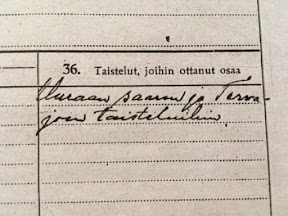 36. Taistelut, joihin ottanut osaa
Uuraan saaren ja Terva-
joen taisteluihin